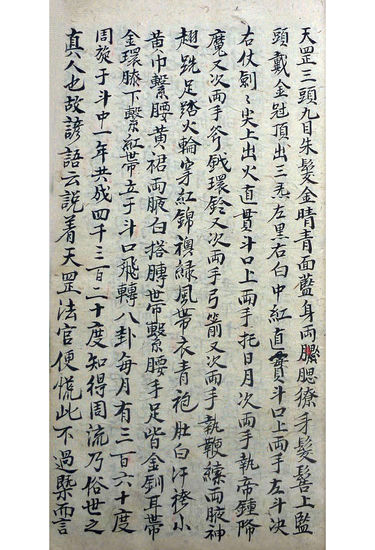 天罡三頭九目朱髮金睛青面藍身兩腮獠牙髮髻上盤
頭戴金冠頂出三炁左黑右白中紅直貫斗口上兩手左斗决
右仗劍々尖上出火直貫斗口上兩手托日月次兩手執帝鍾降
魔又次兩手斧鉞環鈴又次兩手弓箭又次兩手執鞭縲兩腋神
翅跣足踏火輪穿紅錦襖緑風帶衣青袍肚白汗袴小
黃巾繫腰黃裙兩腋白搭膊帶繫腰手足皆金釧耳帶
金環膝下繫紅帶立于斗口飛轉八卦每月有三百六十度
周旋于斗中一年共成四千三百二十度知得周流乃俗世之
真人也故諺語云説着天罡法官便慌此不過槩而言